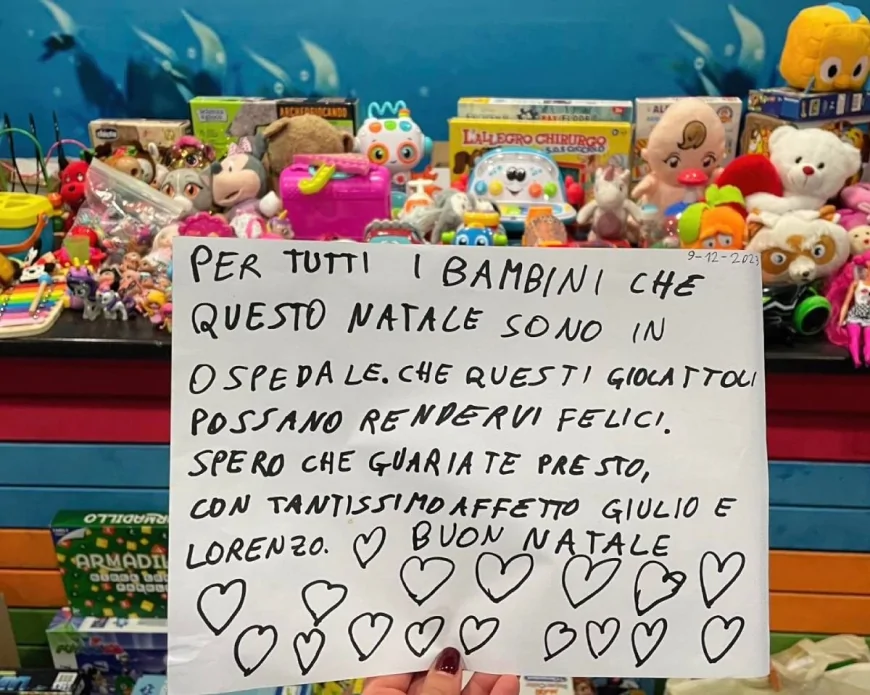 chicco
L'ALLEGRO CHIRURGO
9-12-2023
PER TUTTI I BAMBINI CHE
QUESTO NATALE SONO IN
OSPEDALE. CHE QUESTI GIOCATTOLI
POSSANO RENDERVI FELICI.
SPERO CHE GUARIATE PRESTO,
CON TANTISSIMO AFFETTO GIULIO E
LORENZO. BUON NATALE
ARMADILLO